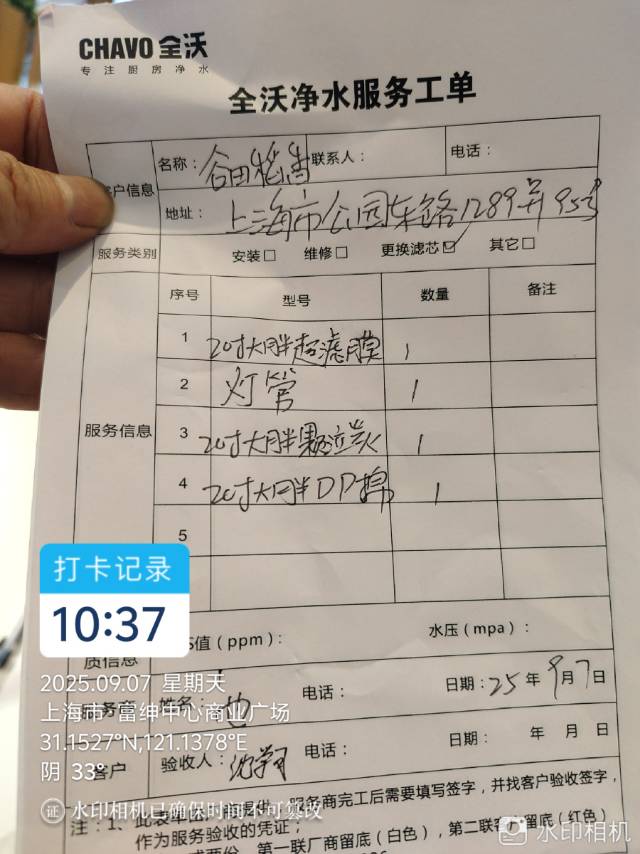 CHAVO 全沃
专注厨房净水
全沃净水服务工单
客户信息
名称：谷田稻香 联系人： 电话：
地址：上海市公园东路1289弄95号
服务类别 安装□ 维修□ 更换滤芯☑ 其它□
服务信息
序号 型号 数量 备注
1 20寸大胖超滤膜 1
2 灯管 1
3 20寸大胖颗粒炭 1
4 20寸大胖PP棉 1
5
打卡记录
10:37
S值（ppm）： 水压（mpa）：
质信息
2025.09.07 星期天
服务商 姓名： 电话： 日期：25年9月7日
上海市·富绅中心商业广场
31.1527°N,121.1378°E
客户 验收人： 电话： 日期： 年 月 日
阴 33°
证 水印相机已确保时间不可篡改
注：1、此表单 服务商完工后需要填写签字，并找客户验收签字，
作为服务验收的凭证；
式两份，第一联厂商留底（白色），第二联客 留底（红色）
水印相机